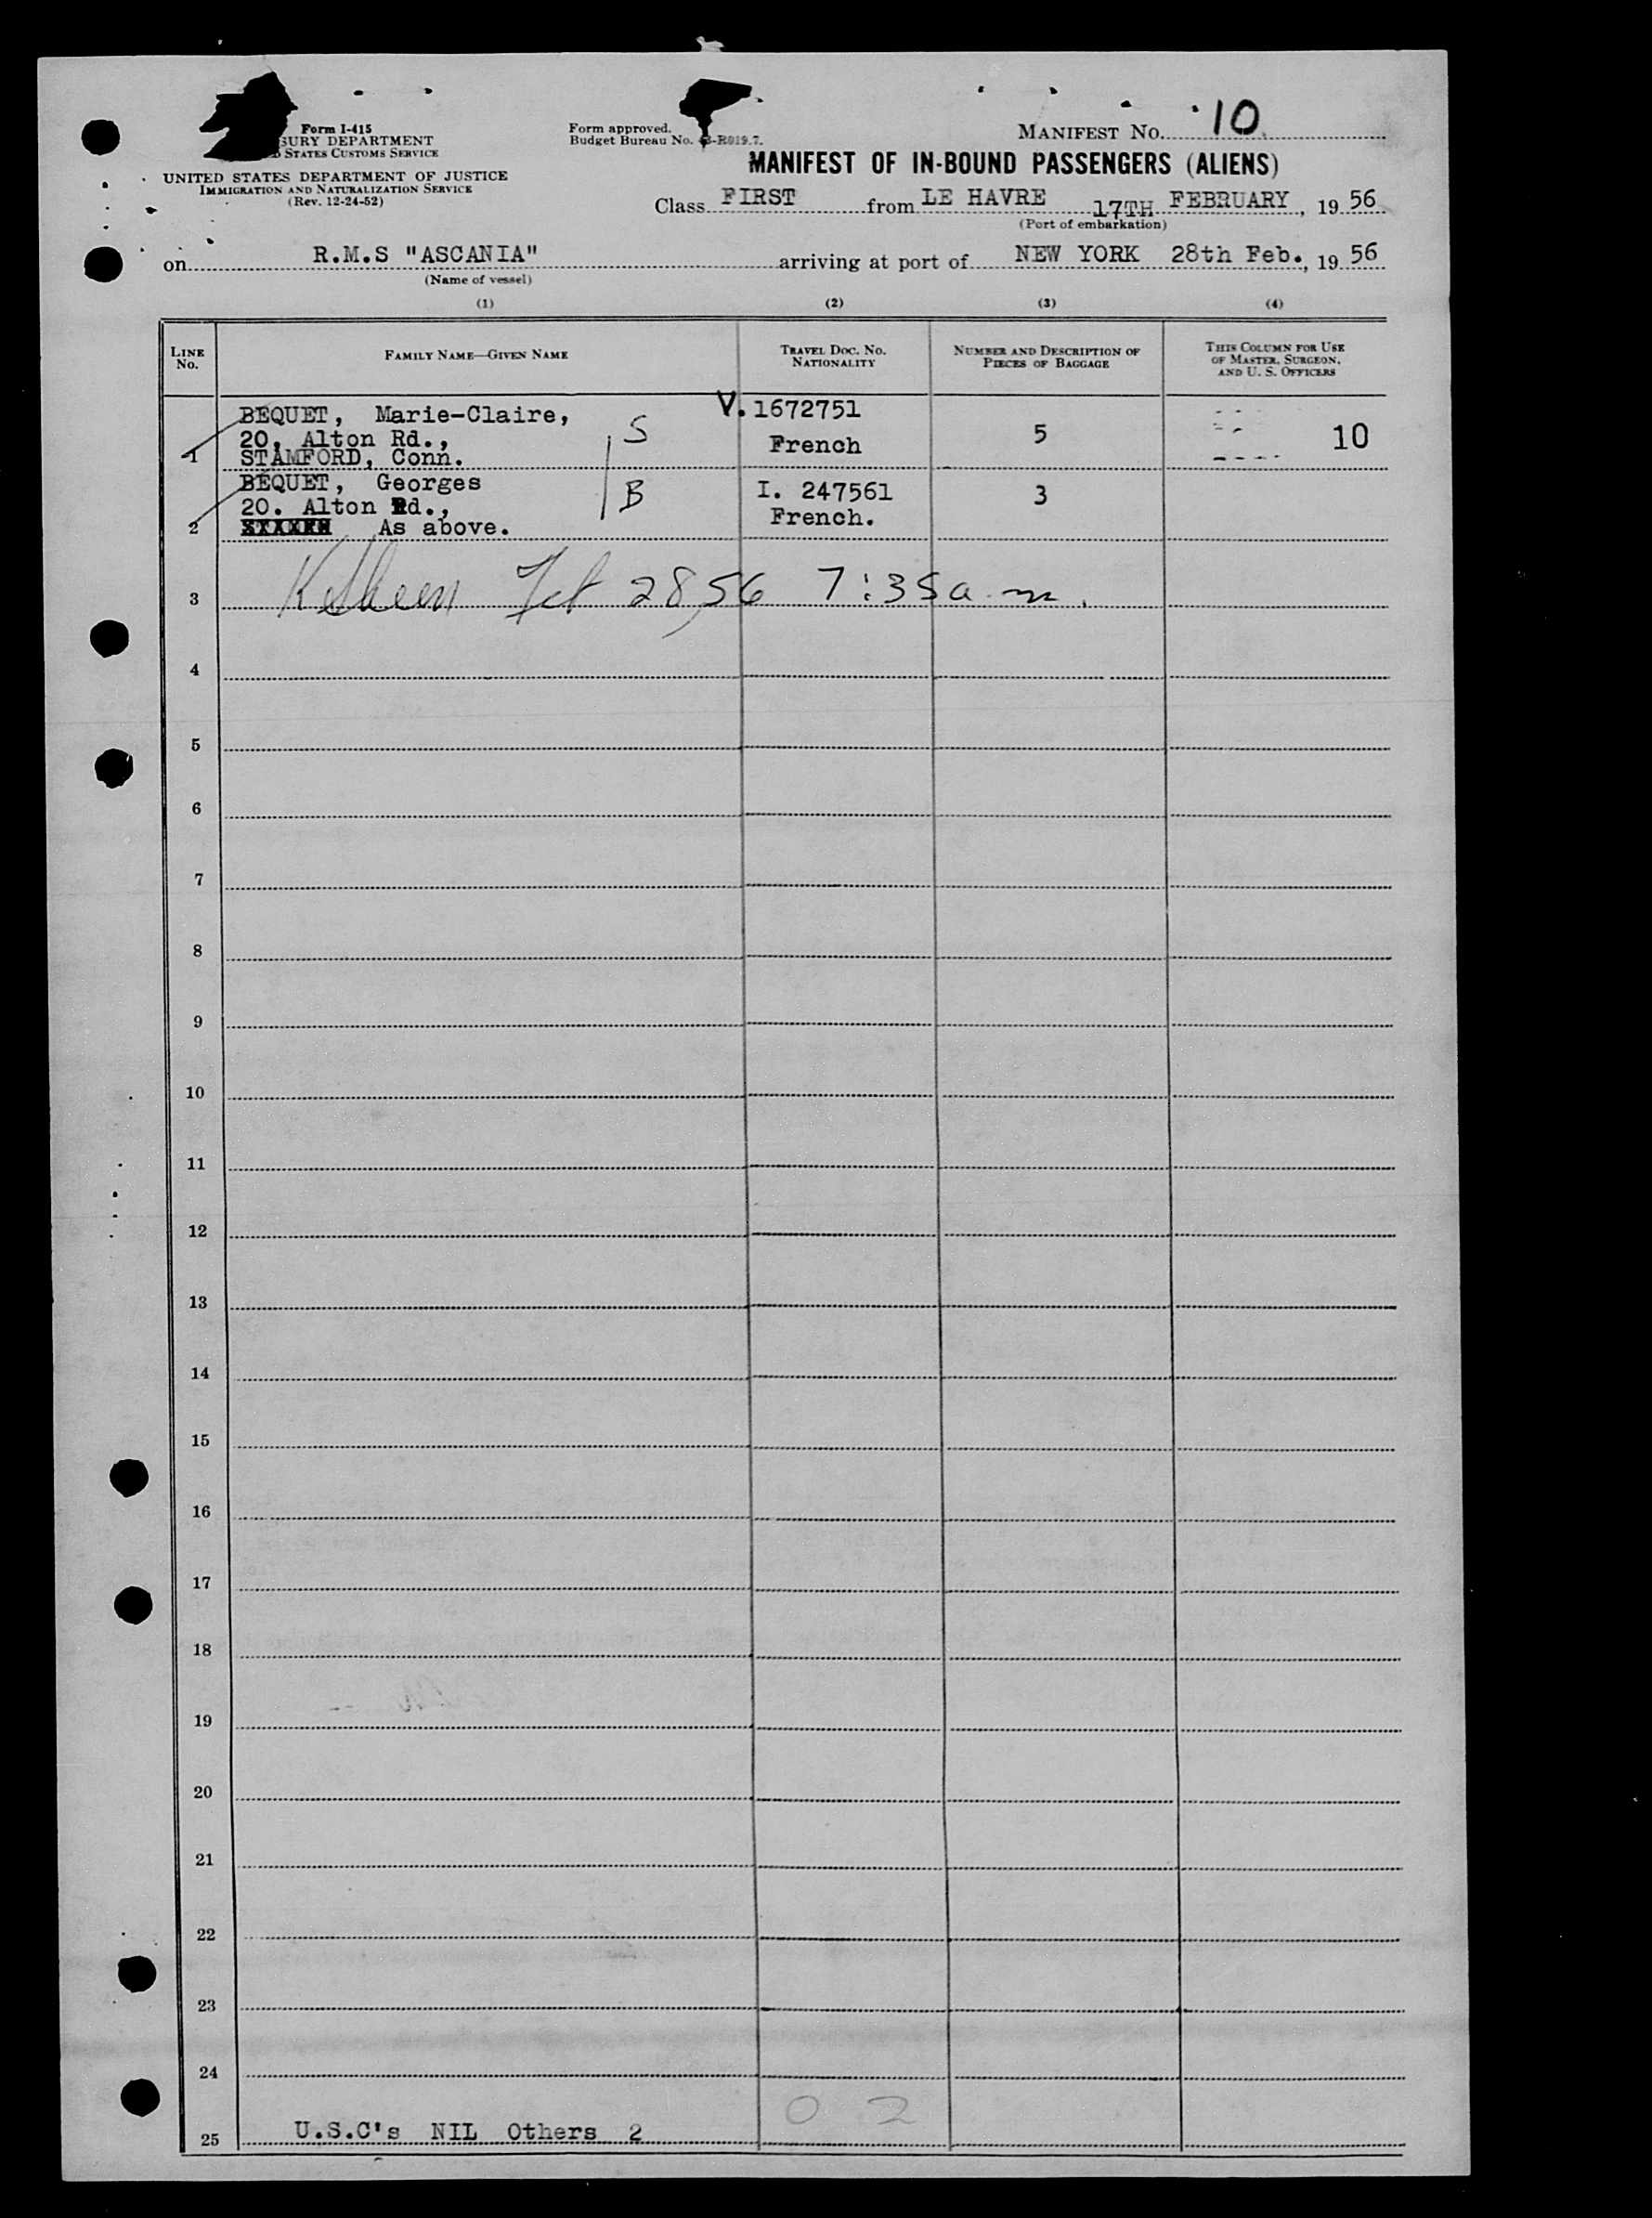 Form I-415
MANIFEST No. 10
SURY DEPARTMENT
STATES CUSTOMS SERVICE
Form approved.
Budget Bureau No. -R019.7.
UNITED STATES DEPARTMENT OF JUSTICE
IMMIGRATION AND NATURALIZATION SERVICE
(Rev. 12-24-52)
MANIFEST OF IN-BOUND PASSENGERS (ALIENS)
Class FIRST from LE HAVRE 17TH FEBRUARY, 19 56
(Port of embarkation)
on R.M.S "ASCANIA" arriving at port of NEW YORK 28th Feb., 19 56
(Name of vessel)
(1) (2) (3) (4)
LINE No. FAMILY NAME—GIVEN NAME TRAVEL DOC. No. NATIONALITY NUMBER AND DESCRIPTION OF PIECES OF BAGGAGE THIS COLUMN FOR USE OF MASTER, SURGEON, AND U. S. OFFICERS
BEQUET, Marie-Claire, V. 1672751
20, Alton Rd., S French 5 10
1 STAMFORD, Conn.
BEQUET, Georges I. 247561
20. Alton Rd., B French. 3
2 As above.
3 Feb 28, 56 7:35 a.m.
4
5
6
7
8
9
10
11
12
13
14
15
16
17
18
19
20
21
22
23
24
0 2
25 U.S.C's NIL Others 2